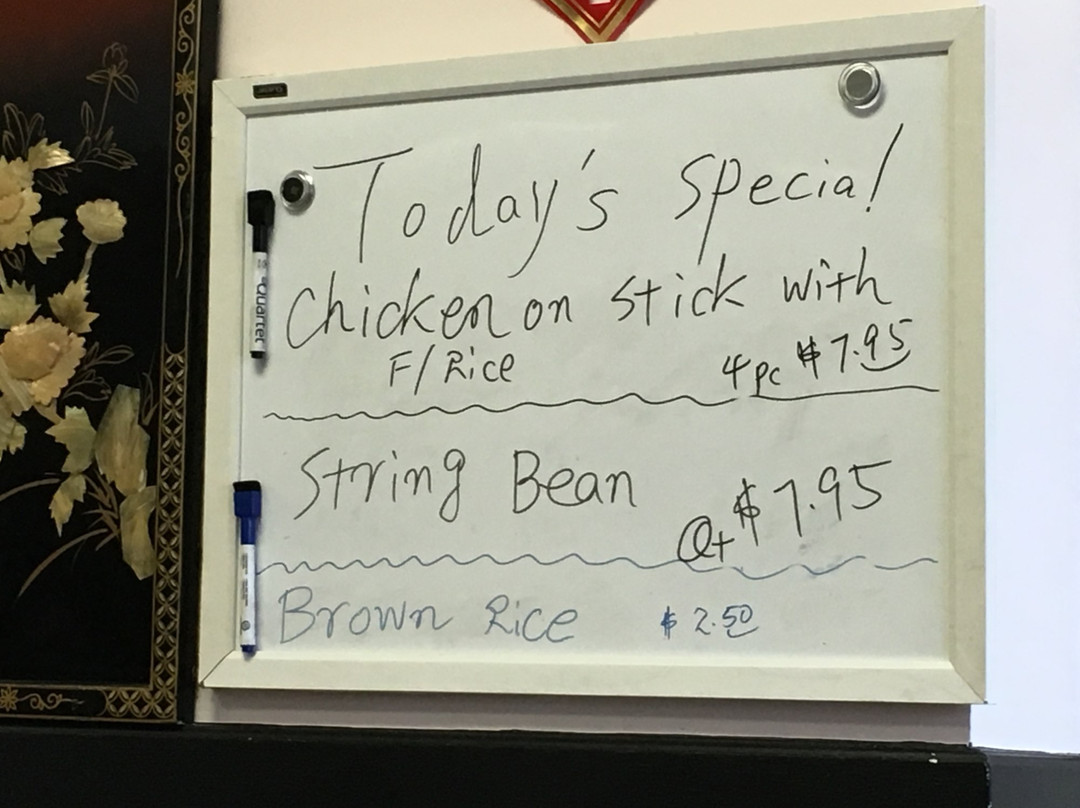 Today's Special!
Chicken on Stick with
F/Rice 4pc $7.95
String Bean
Qt $7.95
Brown Rice $2.50
Quartet